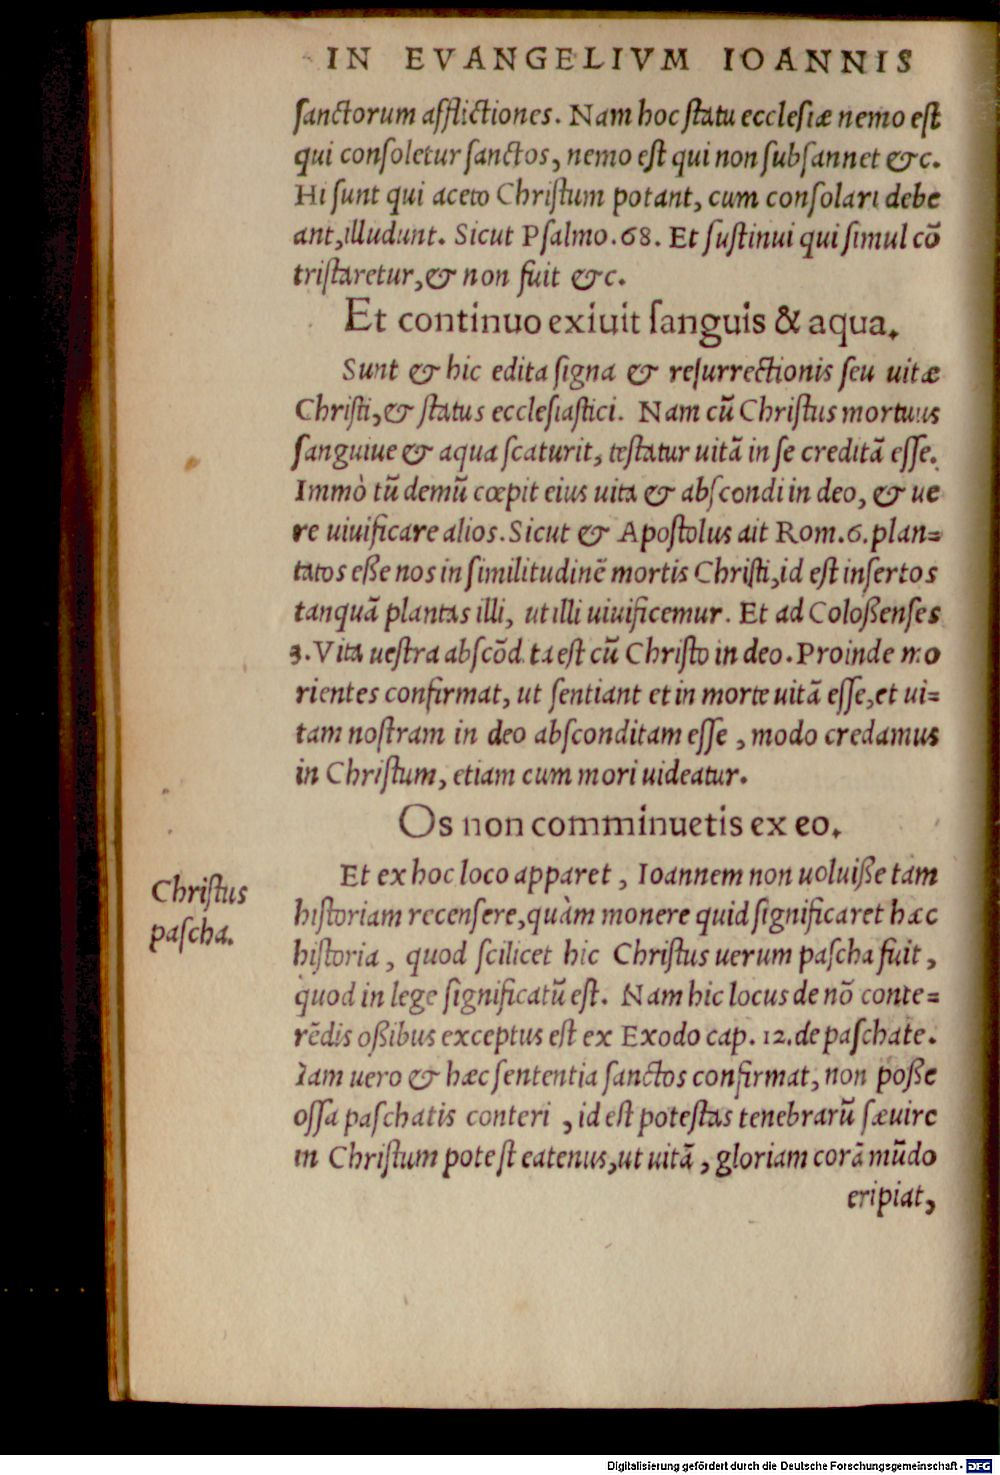 IN EVANGELIVM IOANNIS
ſanctorum afflictiones. Nam hoc ſtatu eccleſiæ nemo eſt
qui conſoletur ſanctos, nemo eſt qui non ſubſannet &c.
Hi ſunt qui aceto Chriſtum potant, cum conſolari debe
ant, illudunt. Sicut Pſalmo .68. Et ſuſtinui qui ſimul cō
triſtaretur, & non fuit &c.
Et continuo exiuit ſanguis & aqua.
Sunt & hic edita ſigna & reſurrectionis ſeu uitæ
Chriſti, & ſtatus eccleſiaſtici. Nam cū Chriſtus mortuus
ſanguine & aqua ſcaturit, teſtatur uitā in ſe creditā eſſe.
Immò tū demū cœpit eius uita & abſcondi in deo, & ue
re uiuificare alios. Sicut & Apoſtolus ait Rom. 6. plan=
tatos eße nos in ſimilitudinē mortis Chriſti, id eſt inſertos
tanquā plantas illi, ut illi uiuificemur. Et ad Coloßenſes
3. Vita ueſtra abſcōd ta eſt cū Chriſto in deo. Proinde mo
rientes confirmat, ut ſentiant et in morte uitā eſſe, et ui=
tam noſtram in deo abſconditam eſſe, modo credamus
in Chriſtum, etiam cum mori uideatur.
Os non comminuetis ex eo.
Christus
paſcha.
Et ex hoc loco apparet, Ioannem non uoluiße tam
hiſtoriam recenſere, quàm monere quid ſignificaret hæc
hiſtoria, quod ſcilicet hic Chriſtus uerum paſcha fuit,
quod in lege ſignificatū eſt. Nam hic locus de nō conte=
rēdis oßibus exceptus eſt ex Exodo cap. 12. de paſchate.
Iam uero & hæc ſententia ſanctos confirmat, non poße
oſſa paſchatis conteri, id eſt poteſtas tenebrarū ſæuire
in Chriſtum poteſt eatenus, ut uitā, gloriam corā mūdo
eripiat,
Digitalisierung gefördert durch die Deutsche Forschungsgemeinschaft - DFG